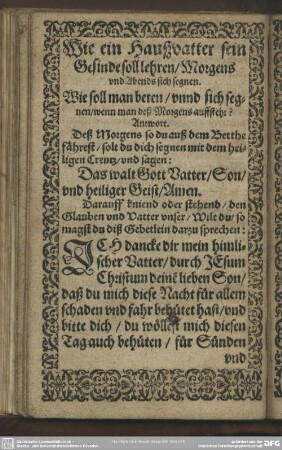 Wie ein Haußvatter sein
Gesinde soll lehren / Morgens
vnd Abends sich segnen.
Wie soll man beten / vnnd sich seg-
nen / wenn man deß Morgens auffsteht?
Antwort.
Deß Morgens so du auß dem Betthe
fährest / solt du dich segnen mit dem hei-
ligen Creutz / vnd sagen:
Das walt Gott Vatter / Son /
vnd heiliger Geist / Amen.
Darauff kniend oder stehend / den
Glauben vnd Vatter vnser / Wilt du / so
magst du diß Gebetlein darzu sprechen:
ICH dancke dir mein himli-
scher Vatter / durch JEsum
Christum deinē lieben Son /
daß du mich diese Nacht für allem
schaden vnd fahr behütet hast / vnd
bitte dich / du wöllest mich diesen
Tag auch behüten / für Sünden
vnd